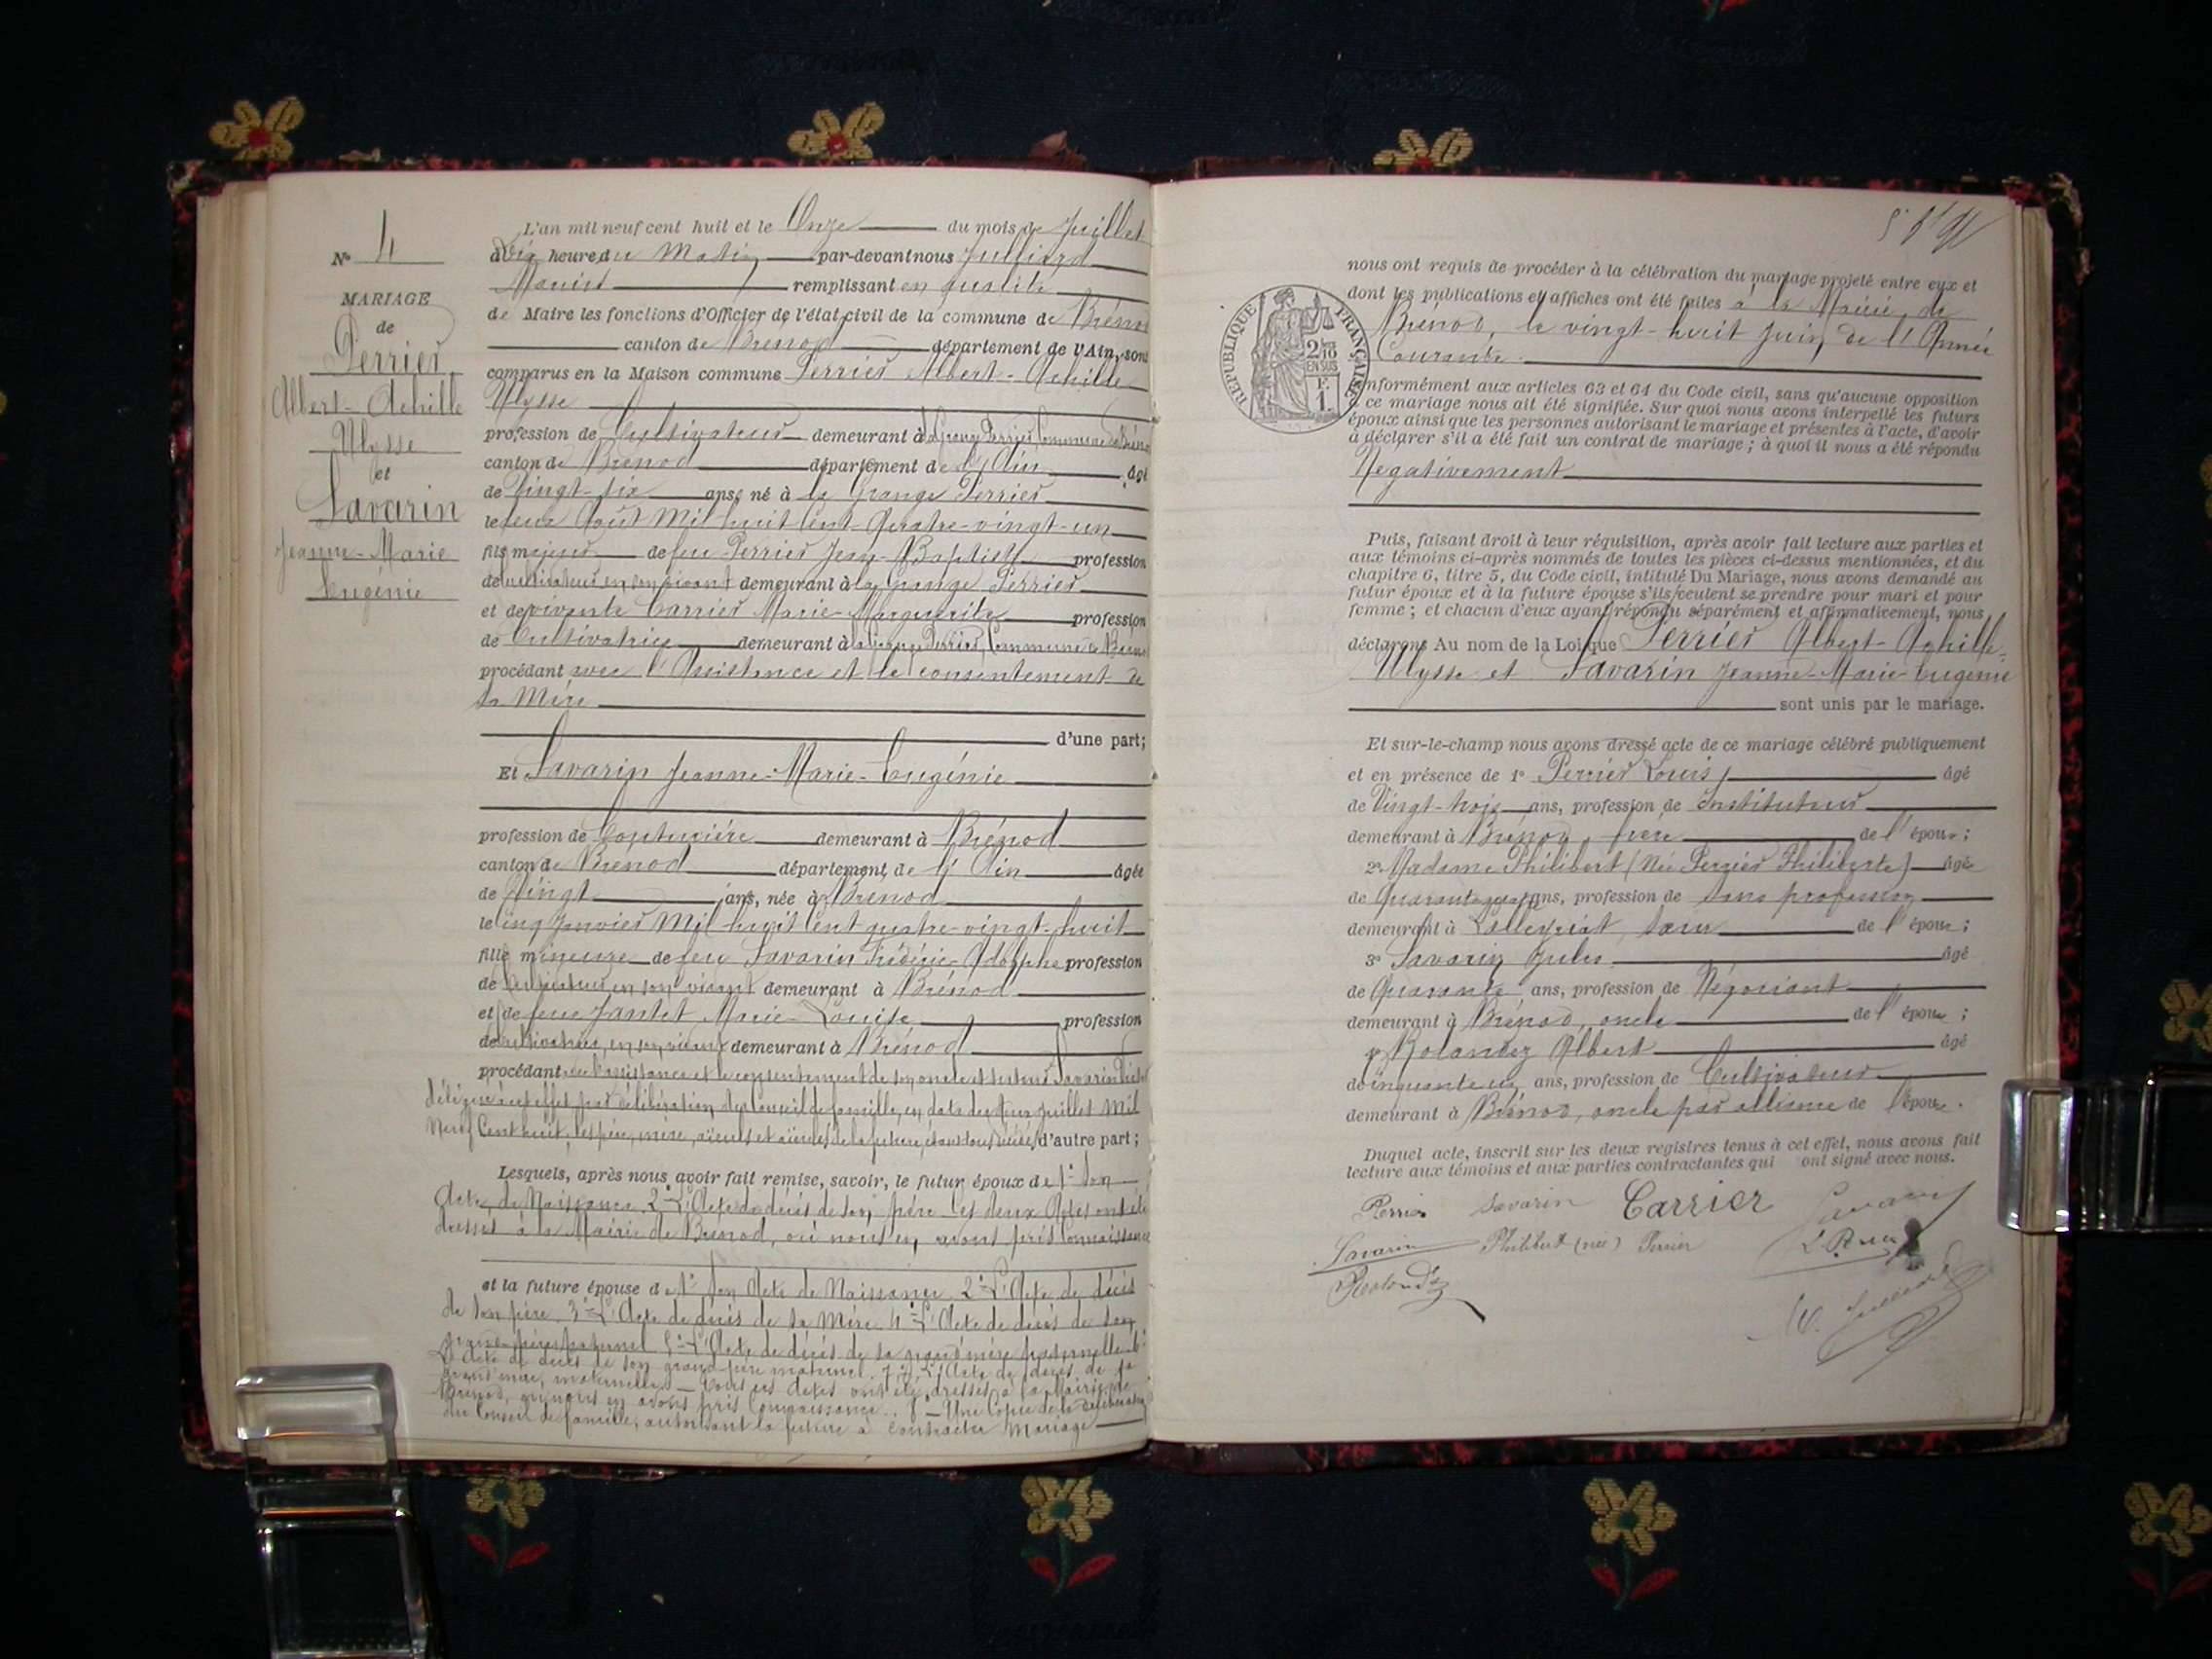 N° 4
MARIAGE
de
Perrier
Albert-Achille
Ulysse
et
Savarin
Jeanne-Marie
Eugénie
L'an mil neuf cent huit et le Onze du mois de Juillet
à Dix heures du Matin par-devant nous Julliard
Marius remplissant en qualité
de Maire les fonctions d'Officier de l'état civil de la commune de Brénod
canton de Brénod département de l'Ain, sont
comparus en la Maison commune Perrier Albert-Achille
Ulysse
profession de Cultivateur demeurant à la Grange Perrier Commune de Brénod
canton de Brénod département de l'Ain âgé
de Vingt-six ans, né à la Grange Perrier
le deux Août Mil huit Cent-Quatre-vingt-un
fils majeur de feu Perrier Jean-Baptiste profession
de cultivateur en son vivant demeurant à la Grange Perrier
et de vivante Carrier Marie-Marguerite profession
de Cultivatrice demeurant à la Grange Perrier, Commune de Brénod
procédant avec l'Assistance et le consentement de
sa Mère
d'une part;
Et Savarin Jeanne-Marie-Eugénie
profession de Couturière demeurant à Brénod
canton de Brénod département de l'Ain âgée
de Vingt ans, née à Brénod
le cinq Janvier Mil huit Cent quatre-vingt-huit
fille mineure de feu Savarin Frédéric-Adolphe profession
de Cultivateur en son vivant demeurant à Brénod
et de feue Jantet Marie-Louise profession
de cultivatrice, en son vivant demeurant à Brénod
procédant de l'assistance et le consentement de son oncle et tuteur Savarin
délégué à cet effet par délibération du Conseil de famille, en date du deux juillet Mil
Neuf Cent huit, les père, mère, aïeuls et aïeules de la future étant tous décédés d'autre part;
Lesquels, après nous avoir fait remise, savoir, le futur époux de 1° Son
Acte de Naissance, 2° L'Acte de décès de son père Ces deux Actes ont été
dressés à la Mairie de Brénod, où nous en avons pris Connaissance
et la future épouse de 1° Son Acte de Naissance 2° L'Acte de décès
de Son père 3° L'Acte de décès de sa Mère 4° L'Acte de décès de Son
grand-père paternel 5° L'Acte de décès de sa grand'mère paternelle 6°
L'Acte de décès de son grand-père maternel 7° L'Acte de décès de sa
grand'mère, maternelle. Tous ces Actes ont été dressés à la Mairie de
Brénod, où nous en avons pris Connaissance. 8° Une Copie de la délibération
du Conseil de famille, autorisant la future à Contracter Mariage
nous ont requis de procéder à la célébration du mariage projeté entre eux et
dont les publications et affiches ont été faites à la Mairie de
Brénod, le vingt-huit Juin de l'Année
Courante.
RÉPUBLIQUE FRANÇAISE
2/10 EN SUS
1 F.
conformément aux articles 63 et 64 du Code civil, sans qu'aucune opposition
à ce mariage nous ait été signifiée. Sur quoi nous avons interpellé les futurs
époux ainsi que les personnes autorisant le mariage et présentes à l'acte, d'avoir
à déclarer s'il a été fait un contrat de mariage; à quoi il nous a été répondu
Negativement
Puis, faisant droit à leur réquisition, après avoir fait lecture aux parties et
aux témoins ci-après nommés de toutes les pièces ci-dessus mentionnées, et du
chapitre 6, titre 5, du Code civil, intitulé Du Mariage, nous avons demandé au
futur époux et à la future épouse s'ils veulent se prendre pour mari et pour
femme; et chacun d'eux ayant répondu séparément et affirmativement, nous
déclarons Au nom de la Loi que Perrier Albert-Achille-
Ulysse et Savarin Jeanne-Marie-Eugénie
sont unis par le mariage.
Et sur-le-champ nous avons dressé acte de ce mariage célébré publiquement
et en présence de 1° Perrier Louis âgé
de Vingt-trois ans, profession de Instituteur
demeurant à Brénod, frère de l'époux;
2° Madame Philibert (Née Perrier Philiberte) âgée
de Quarante quatre ans, profession de Sans profession
demeurant à Lalleyriat, Sœur de l'époux;
3° Savarin Jules âgé
de Quarante ans, profession de Négociant
demeurant à Brénod, oncle de l'épouse;
4° Rolandez Albert âgé
de cinquante un ans, profession de Cultivateur
demeurant à Brénod, oncle par alliance de l'épouse.
Duquel acte, inscrit sur les deux registres tenus à cet effet, nous avons fait
lecture aux témoins et aux parties contractantes qui ont signé avec nous.
Perrier Savarin Carrier Savarin
Savarin Philibert (née) Perrier L Perrier
Rolandez
M. Julliard